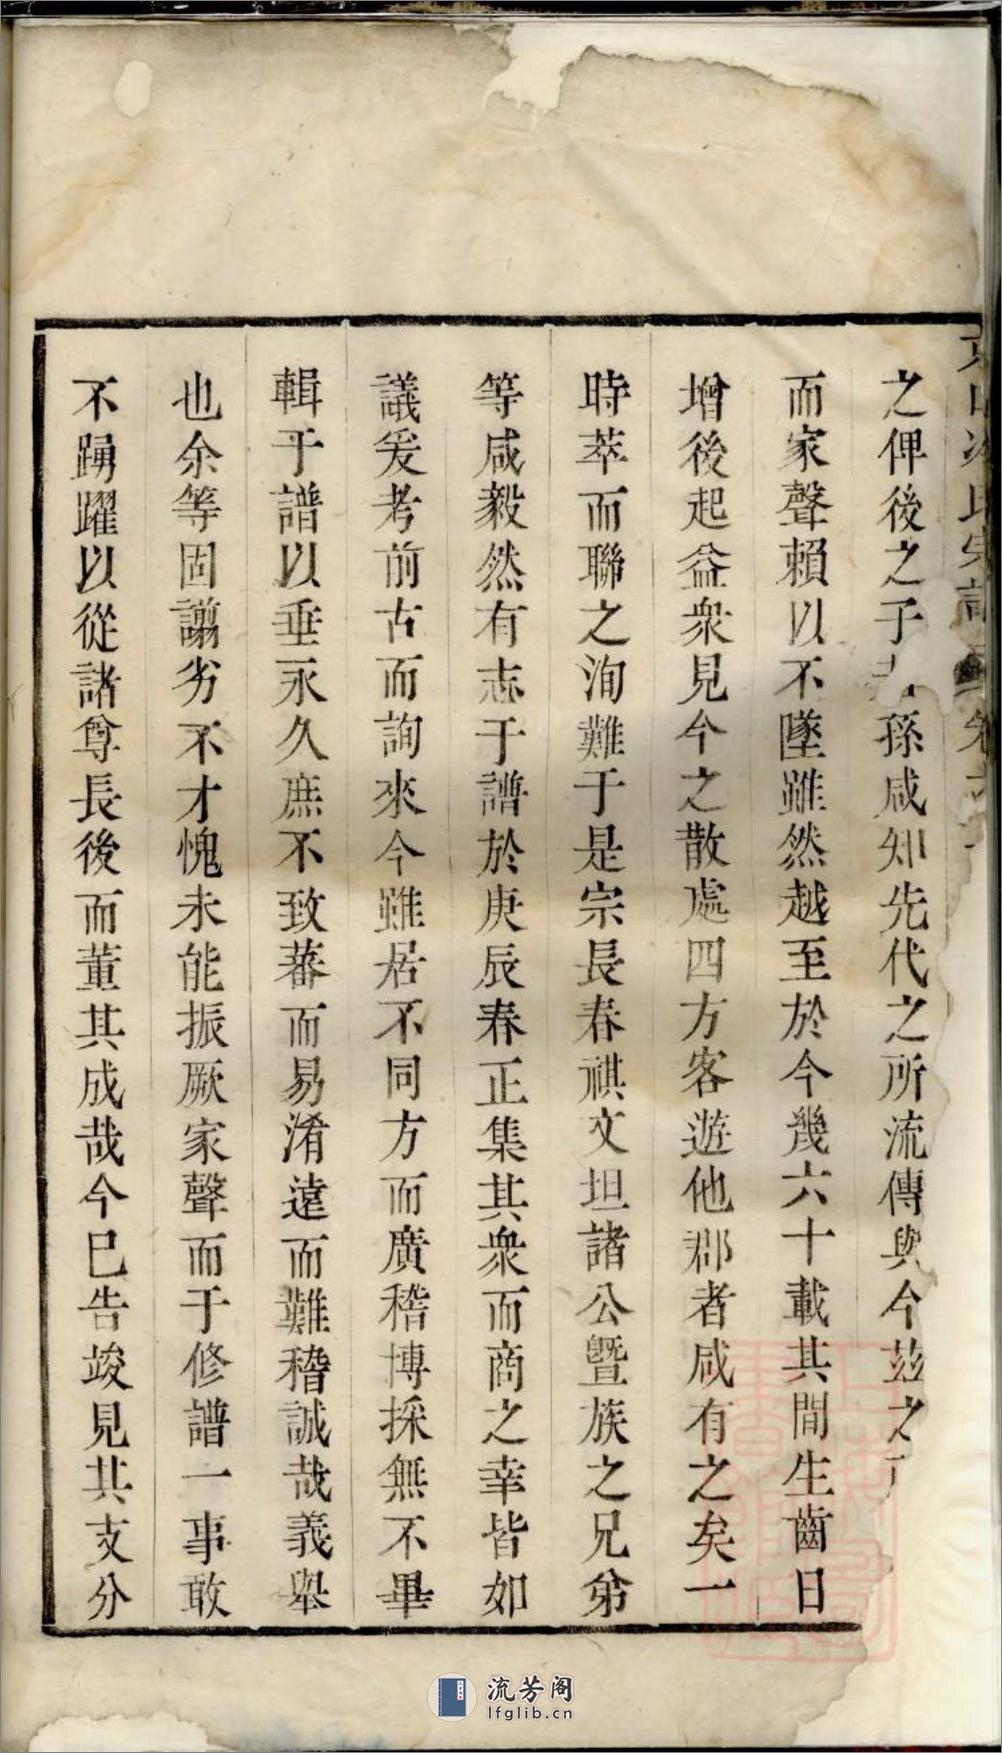 氏宗譜卷
之俾後之子孫咸知先代之所流傳與今茲之
而家聲賴以不墜雖然越至於今幾六十載其間生齒日
增後起益衆見今之散處四方客遊他郡者咸有之矣一
時萃而聯之洵難于是宗長春祺文坦諸公曁族之兄弟
等咸毅然有志于譜於庚辰春正集其衆而商之幸皆如
議爰考前古而詢來今雖居不同方而廣稽博採無不畢
輯于譜以垂永久庶不致蕃而易淆遠而難稽誠哉義舉
也余等固謭劣不才愧未能振厥家聲而于修譜一事敢
不踴躍以從諸尊長後而董其成哉今已告竣見其支分
流芳阁
lfglib.cn